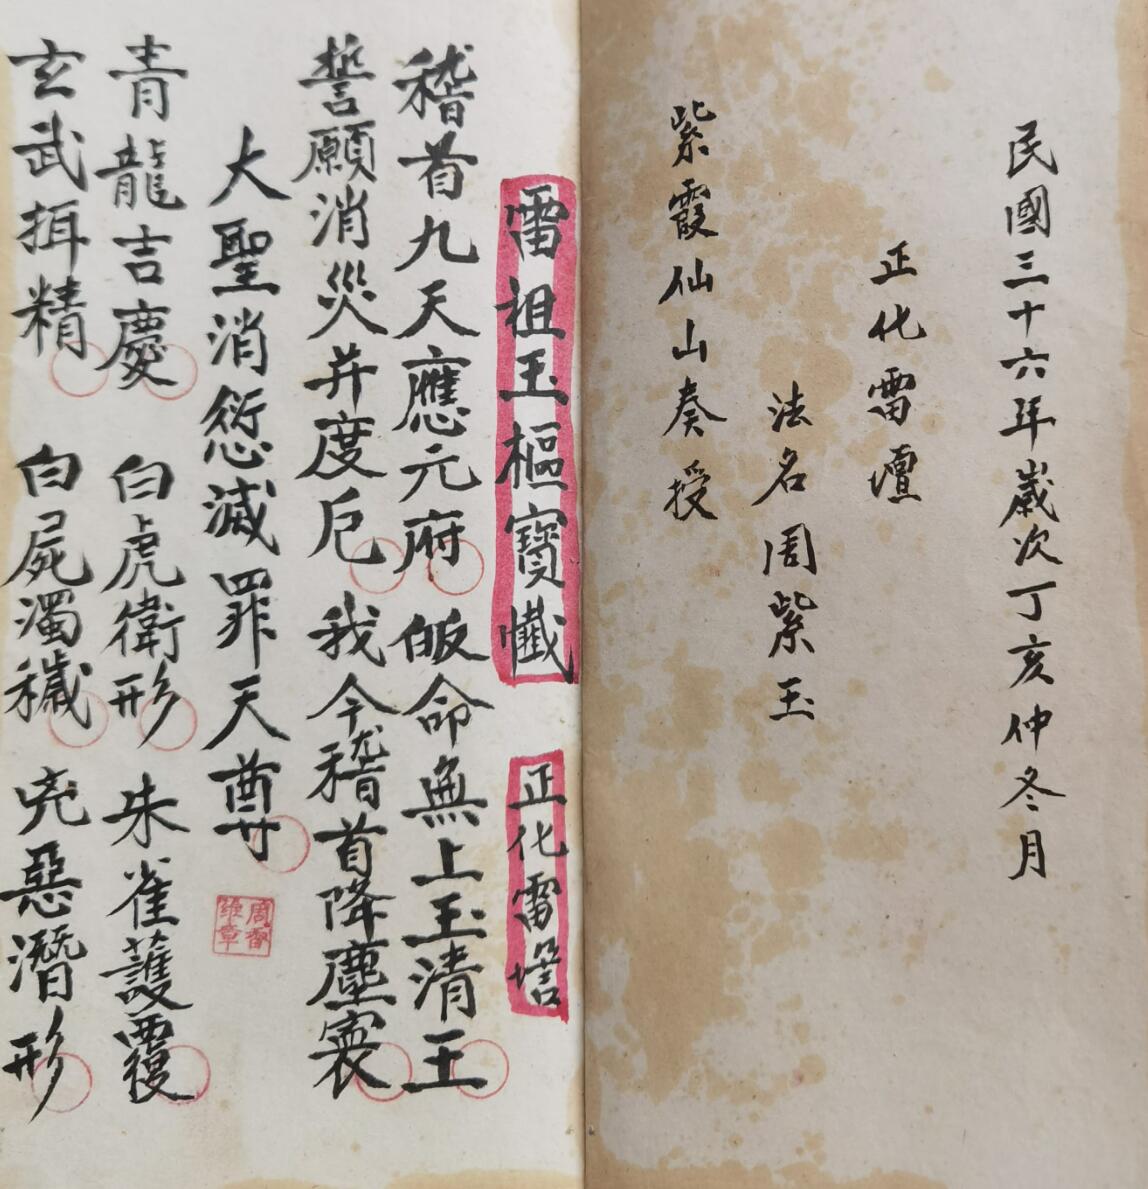 民國三十六年歲次丁亥仲冬月
正化雷壇
法名周紫玉
紫霞仙山奏授
雷祖玉樞寶懺 正化雷壇
稽首九天應元府 皈命無上玉清王
誓願消災并度厄 我今稽首降塵寰
大聖消愆滅罪天尊
青龍吉慶 白虎衛形 朱雀護覆
玄武揖精 白屍濁穢 兇惡潛形